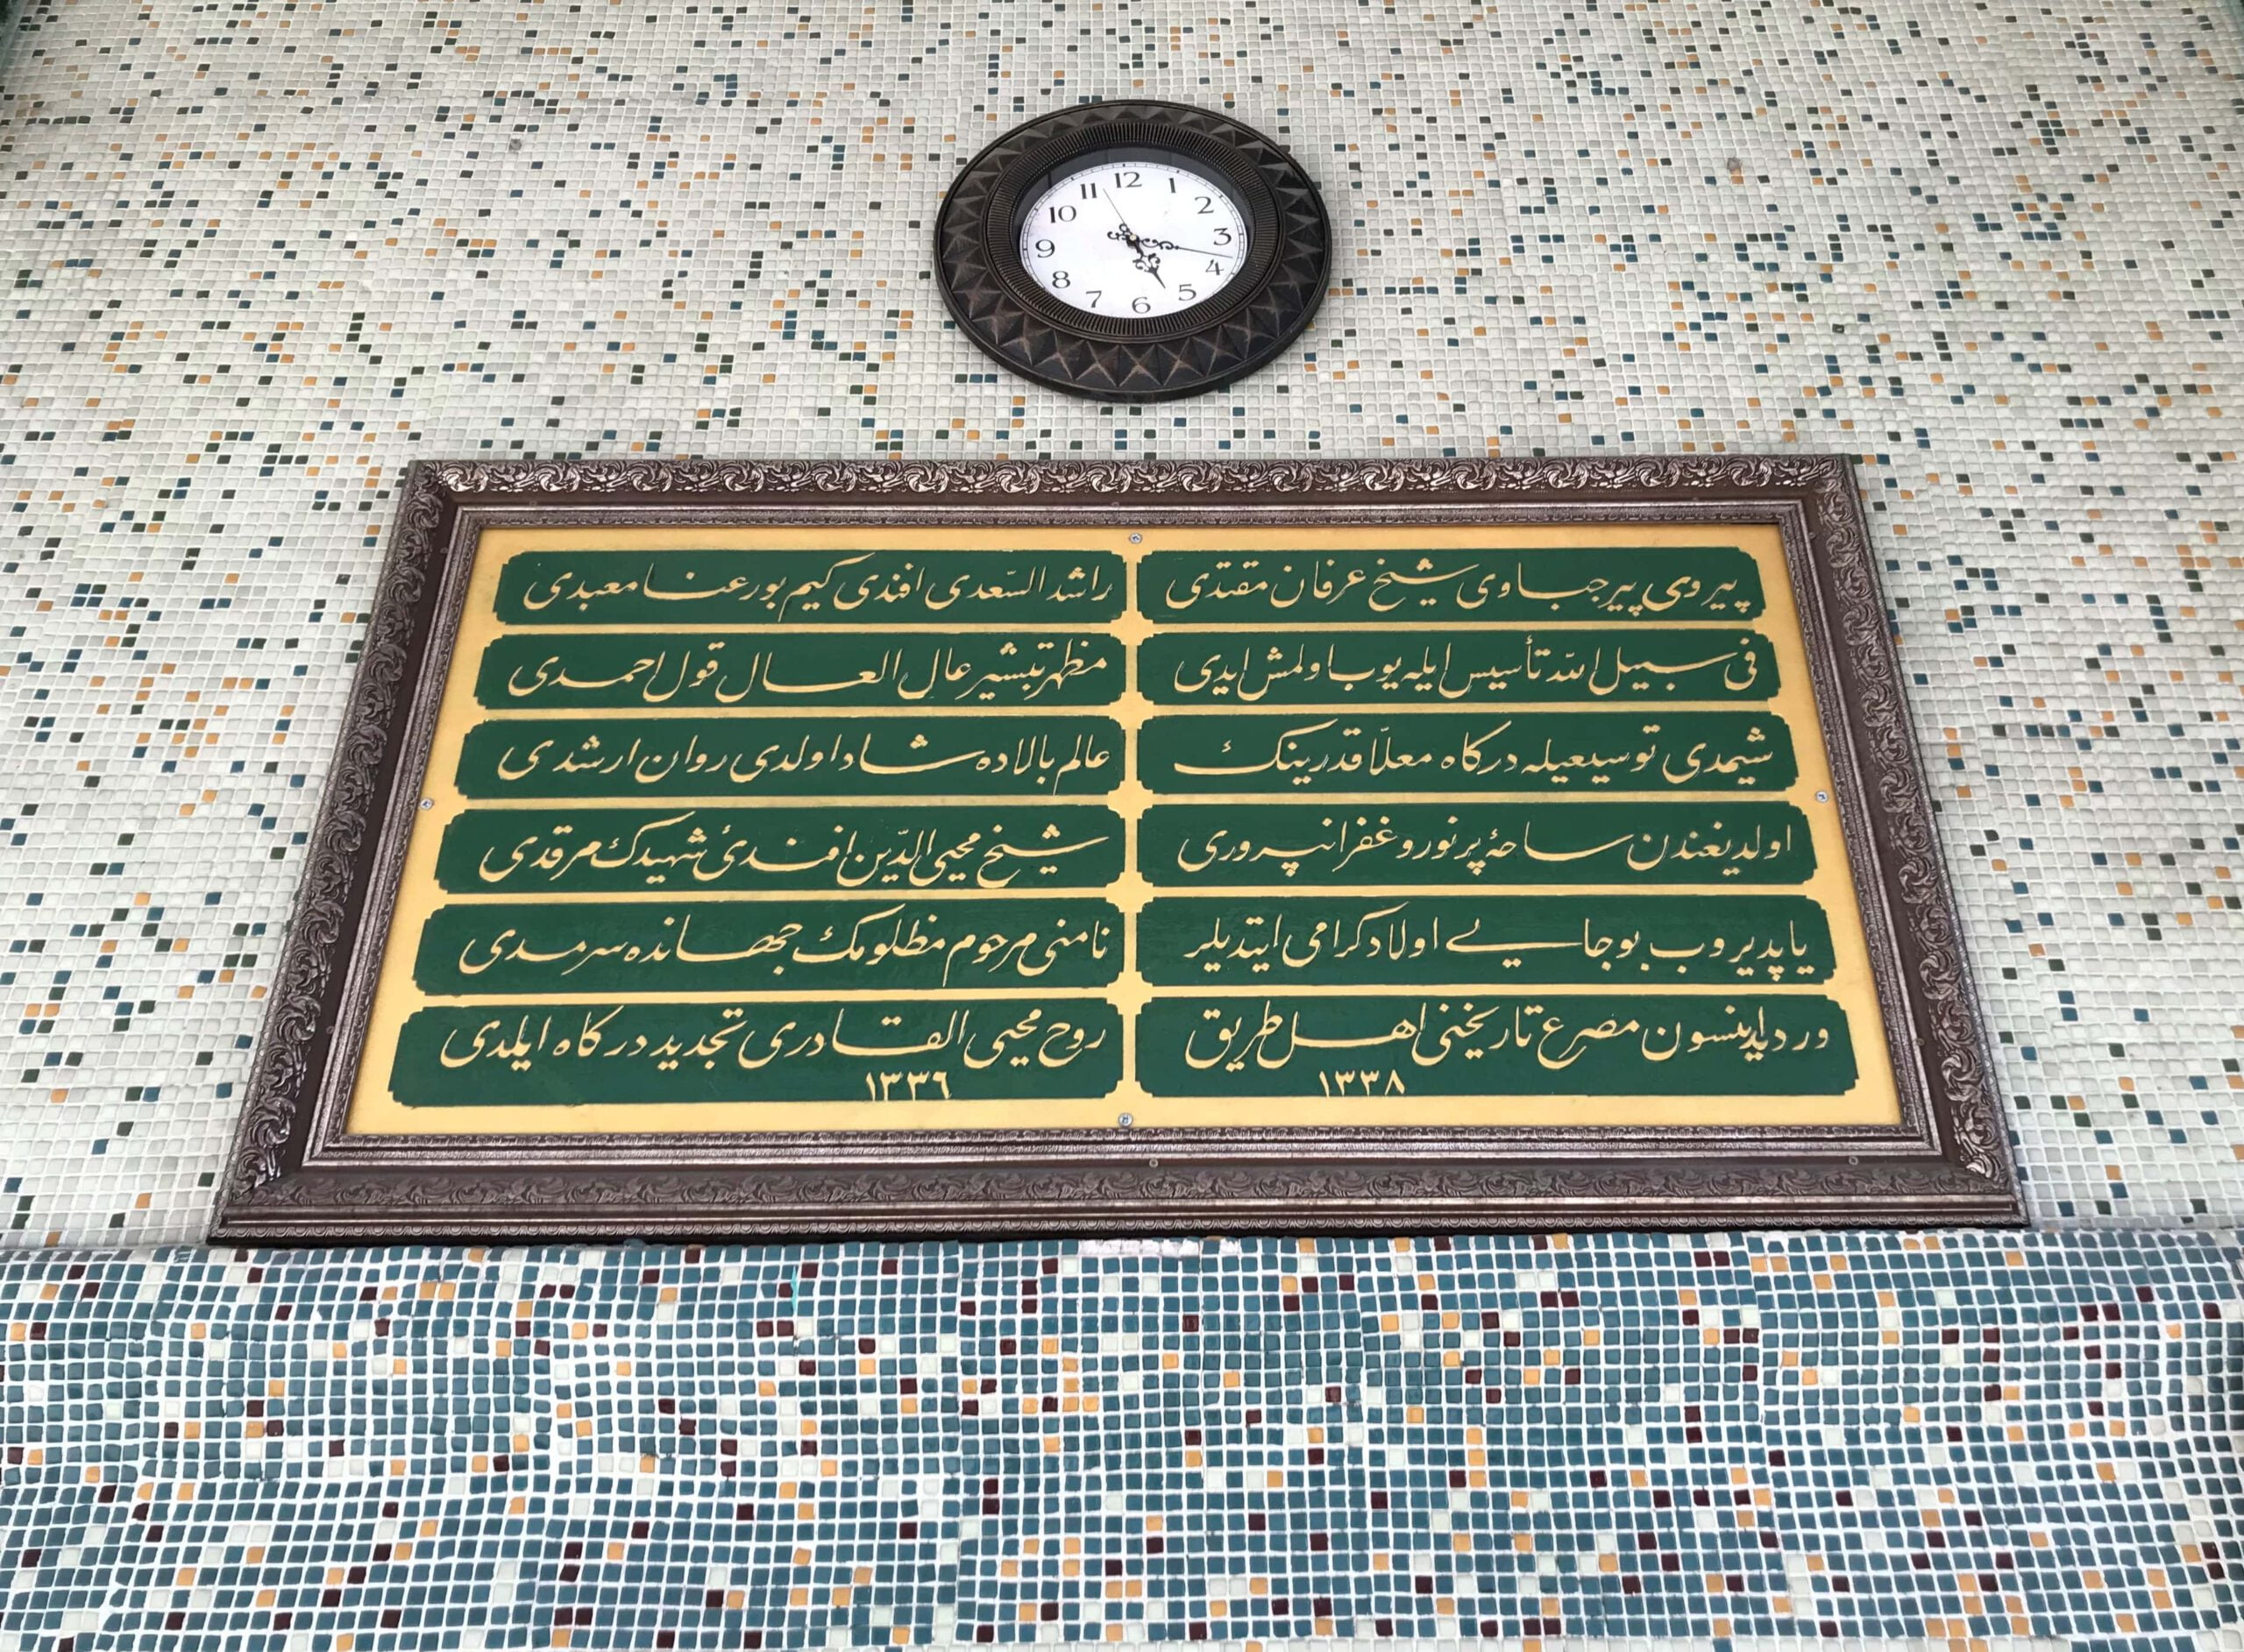 12
1
2
3
4
5
6
7
8
9
10
11
پیروی پیر جباوی شیخ عرفان مقتدی
راشد السّعدی افندی کیم بو رعنا معبدی
فی سبیل اللّه تأسیس ایله یوب اولمش ایدی
مظهر تبشیر عال العال قول احمدی
شیمدی توسیعیله درکاه معلّا قدرینك
عالم بالاده شاد اولدی روان ارشدی
اولدیغندن ساحهٔ پر نور و غفرانپروری
شیخ محیی الدّین افندئ شهیدك مرقدی
یاپدیروب بو جایی اولاد کرامی ایتدیلر
نامنی مرحوم مظلومك جهانده سرمدی
ورد ایدینسون مصرع تاریخنی اهل طریق
روح محیی القادری تجدید درکاه ایلدی
١٣٣٨
١٣٣٦